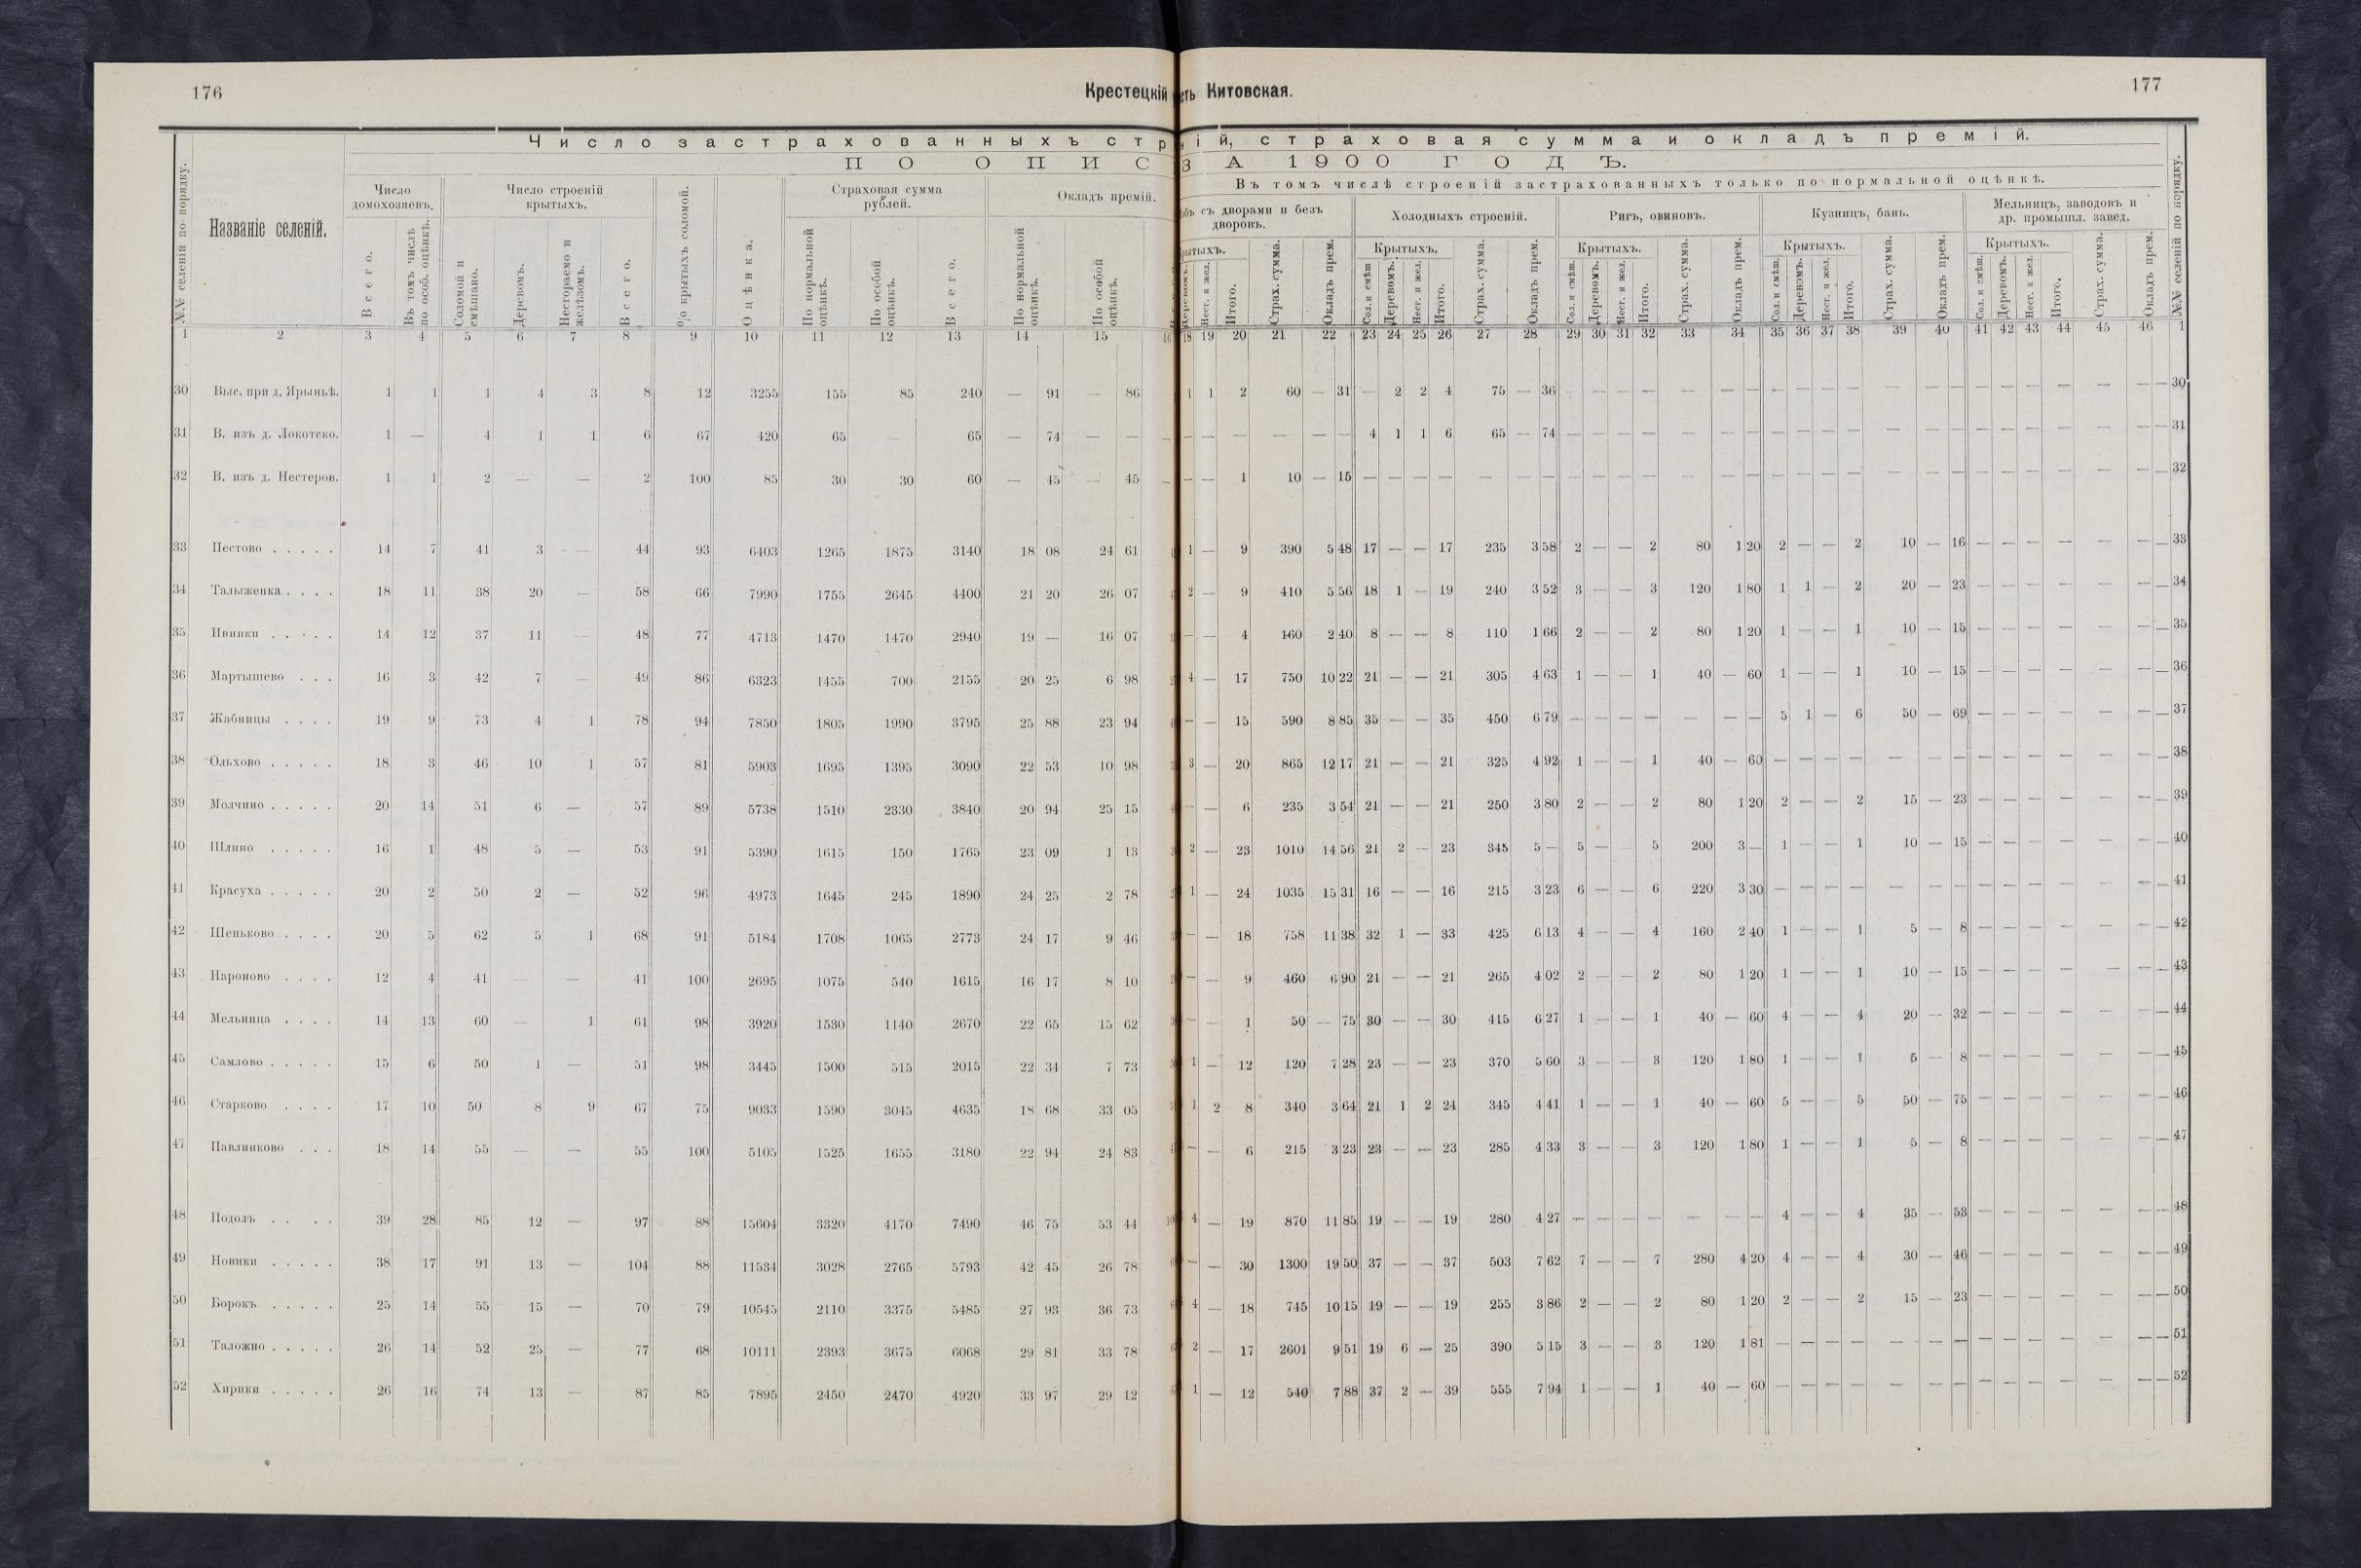 176
Крестецкій
сть Китовская.
177
Число застрахованныхъ стр
ній, страховая сумма и окладъ премій.
ПО ОПИС
ЗА 1900 ГОДЪ.
№№ селеній по порядку.
Названіе селеній.
Число домохозяевъ.
Число строеній крытыхъ.
% крытыхъ соломой.
Оцѣнка.
Страховая сумма рублей.
Окладъ премій.
Въ томъ числѣ строеній застрахованныхъ только по нормальной оцѣнкѣ.
съ дворами и безъ дворовъ.
Холодныхъ строеній.
Ригъ, овиновъ.
Кузницъ, бань.
Мельницъ, заводовъ и др. промышл. завед.
№№ селеній по порядку.
Всего.
Въ томъ числѣ по особ. оцѣнкѣ.
Соломой и смѣшано.
Деревомъ.
Нестораемо и желѣзомъ.
Всего.
По нормальной оцѣнкѣ.
По особой оцѣнкѣ.
Всего.
По нормальной оцѣнкѣ.
По особой оцѣнкѣ.
Нест. и жел. Итого. Страх. сумма. Окладъ прем.
Крытыхъ. Сол. и смѣш Деревомъ. Нест. и жел. Итого. Страх. сумма. Окладъ прем.
Крытыхъ. Сол. и смѣш. Деревомъ. Нест. и жел. Итого. Страх. сумма. Окладъ прем.
Крытыхъ. Сол. и смѣш. Деревомъ. Нест. и жел. Итого. Страх. сумма. Окладъ прем.
Крытыхъ. Сол. и смѣш. Деревомъ. Нест. и жел. Итого. Страх. сумма. Окладъ прем.
1 2 3 4 5 6 7 8 9 10 11 12 13 14 15 16 18 19 20 21 22 23 24 25 26 27 28 29 30 31 32 33 34 35 36 37 38 39 40 41 42 43 44 45 46 1
30 Выс. при д. Ярыньѣ. 1 1 1 4 3 8 12 3255 155 85 240 — 91 — 86 1 1 2 60 — 31 — 2 2 4 75 — 36 — — — — — — — — — — — — — — — — — — — — — 30
31 В. изъ д. Локотско. 1 — 4 1 1 6 67 420 65 — 65 — 74 — — — — — — — — 4 1 1 6 65 — 74 — — — — — — — — — — — — — — — — — — — — — 31
32 В. изъ д. Нестеров. 1 1 2 — — 2 100 85 30 30 60 — 45 — 45 — — 1 10 — 15 — — — — — — — — — — — — — — — — — — — — — — — — — — — — 32
33 Пестово 14 7 41 3 — 44 93 6403 1265 1875 3140 18 08 24 61 1 — 9 390 5 48 17 — — 17 235 3 58 2 — — 2 80 1 20 2 — — 2 10 — 16 — — — — — — — 33
34 Талыженка 18 11 38 20 — 58 66 7990 1755 2645 4400 21 20 26 07 2 — 9 410 5 56 18 1 — 19 240 3 52 3 — — 3 120 1 80 1 1 — 2 20 — 23 — — — — — — — 34
35 Ивники 14 12 37 11 — 48 77 4713 1470 1470 2940 19 — 16 07 — — 4 160 2 40 8 — — 8 110 1 66 2 — — 2 80 1 20 1 — — 1 10 — 15 — — — — — — — 35
36 Мартышево 16 3 42 7 — 49 86 6323 1455 700 2155 20 25 6 98 4 — 17 750 10 22 21 — — 21 305 4 63 1 — — 1 40 — 60 1 — — 1 10 — 15 — — — — — — — 36
37 Жабницы 19 9 73 4 1 78 94 7850 1805 1990 3795 25 88 23 94 — — 15 590 8 85 35 — — 35 450 6 79 — — — — — — — 5 1 — 6 50 — 69 — — — — — — — 37
38 Ольхово 18 3 46 10 1 57 81 5903 1695 1395 3090 22 53 10 98 3 — 20 865 12 17 21 — — 21 325 4 92 1 — — 1 40 — 60 — — — — — — — — — — — — — — 38
39 Молчино 20 14 51 6 — 57 89 5738 1510 2330 3840 20 94 25 15 — — 6 235 3 54 21 — — 21 250 3 80 2 — — 2 80 1 20 2 — — 2 15 — 23 — — — — — — — 39
40 Шлино 16 1 48 5 — 53 91 5390 1615 150 1765 23 09 1 13 2 — 23 1010 14 56 21 2 — 23 345 5 — 5 — — 5 200 3 — 1 — — 1 10 — 15 — — — — — — — 40
41 Красуха 20 2 50 2 — 52 96 4973 1645 245 1890 24 25 2 78 1 — 24 1035 15 31 16 — — 16 215 3 23 6 — — 6 220 3 30 — — — — — — — — — — — — — — 41
42 Шеньково 20 5 62 5 1 68 91 5184 1708 1065 2773 24 17 9 46 — — 18 758 11 38 32 1 — 33 425 6 13 4 — — 4 160 2 40 1 — — 1 5 — 8 — — — — — — — 42
43 Нароново 12 4 41 — — 41 100 2695 1075 540 1615 16 17 8 10 — — 9 460 6 90 21 — — 21 265 4 02 2 — — 2 80 1 20 1 — — 1 10 — 15 — — — — — — — 43
44 Мельница 14 13 60 — 1 61 98 3920 1530 1140 2670 22 65 15 62 — — 1 50 — 75 30 — — 30 415 6 27 1 — — 1 40 — 60 4 — — 4 20 — 32 — — — — — — — 44
45 Самлово 15 6 50 1 — 51 98 3445 1500 515 2015 22 34 7 73 1 — 12 120 7 28 23 — — 23 370 5 60 3 — — 3 120 1 80 1 — — 1 5 — 8 — — — — — — — 45
46 Старково 17 10 50 8 9 67 75 9033 1590 3045 4635 18 68 33 05 1 2 8 340 3 64 21 1 2 24 345 4 41 1 — — 1 40 — 60 5 — — 5 50 — 75 — — — — — — — 46
47 Павлинково 18 14 55 — — 55 100 5105 1525 1655 3180 22 94 24 83 — — 6 215 3 23 23 — — 23 285 4 33 3 — — 3 120 1 80 1 — — 1 5 — 8 — — — — — — — 47
48 Подолъ 39 28 85 12 — 97 88 15604 3320 4170 7490 46 75 53 44 4 — 19 870 11 85 19 — — 19 280 4 27 — — — — — — — 4 — — 4 35 — 53 — — — — — — — 48
49 Новики 38 17 91 13 — 104 88 11534 3028 2765 5793 42 45 26 78 — — 30 1300 19 50 37 — — 37 503 7 62 7 — — 7 280 4 20 4 — — 4 30 — 46 — — — — — — — 49
50 Борокъ 25 14 55 15 — 70 79 10545 2110 3375 5485 27 93 36 73 4 — 18 745 10 15 19 — — 19 255 3 86 2 — — 2 80 1 20 2 — — 2 15 — 23 — — — — — — — 50
51 Таложно 26 14 52 25 — 77 68 10111 2393 3675 6068 29 81 33 78 2 — 17 2601 9 51 19 6 — 25 390 5 15 3 — — 3 120 1 81 — — — — — — — — — — — — — — 51
52 Хирики 26 16 74 13 — 87 85 7895 2450 2470 4920 33 97 29 12 1 — 12 540 7 88 37 2 — 39 555 7 94 1 — — 1 40 — 60 — — — — — — — — — — — — — — 52